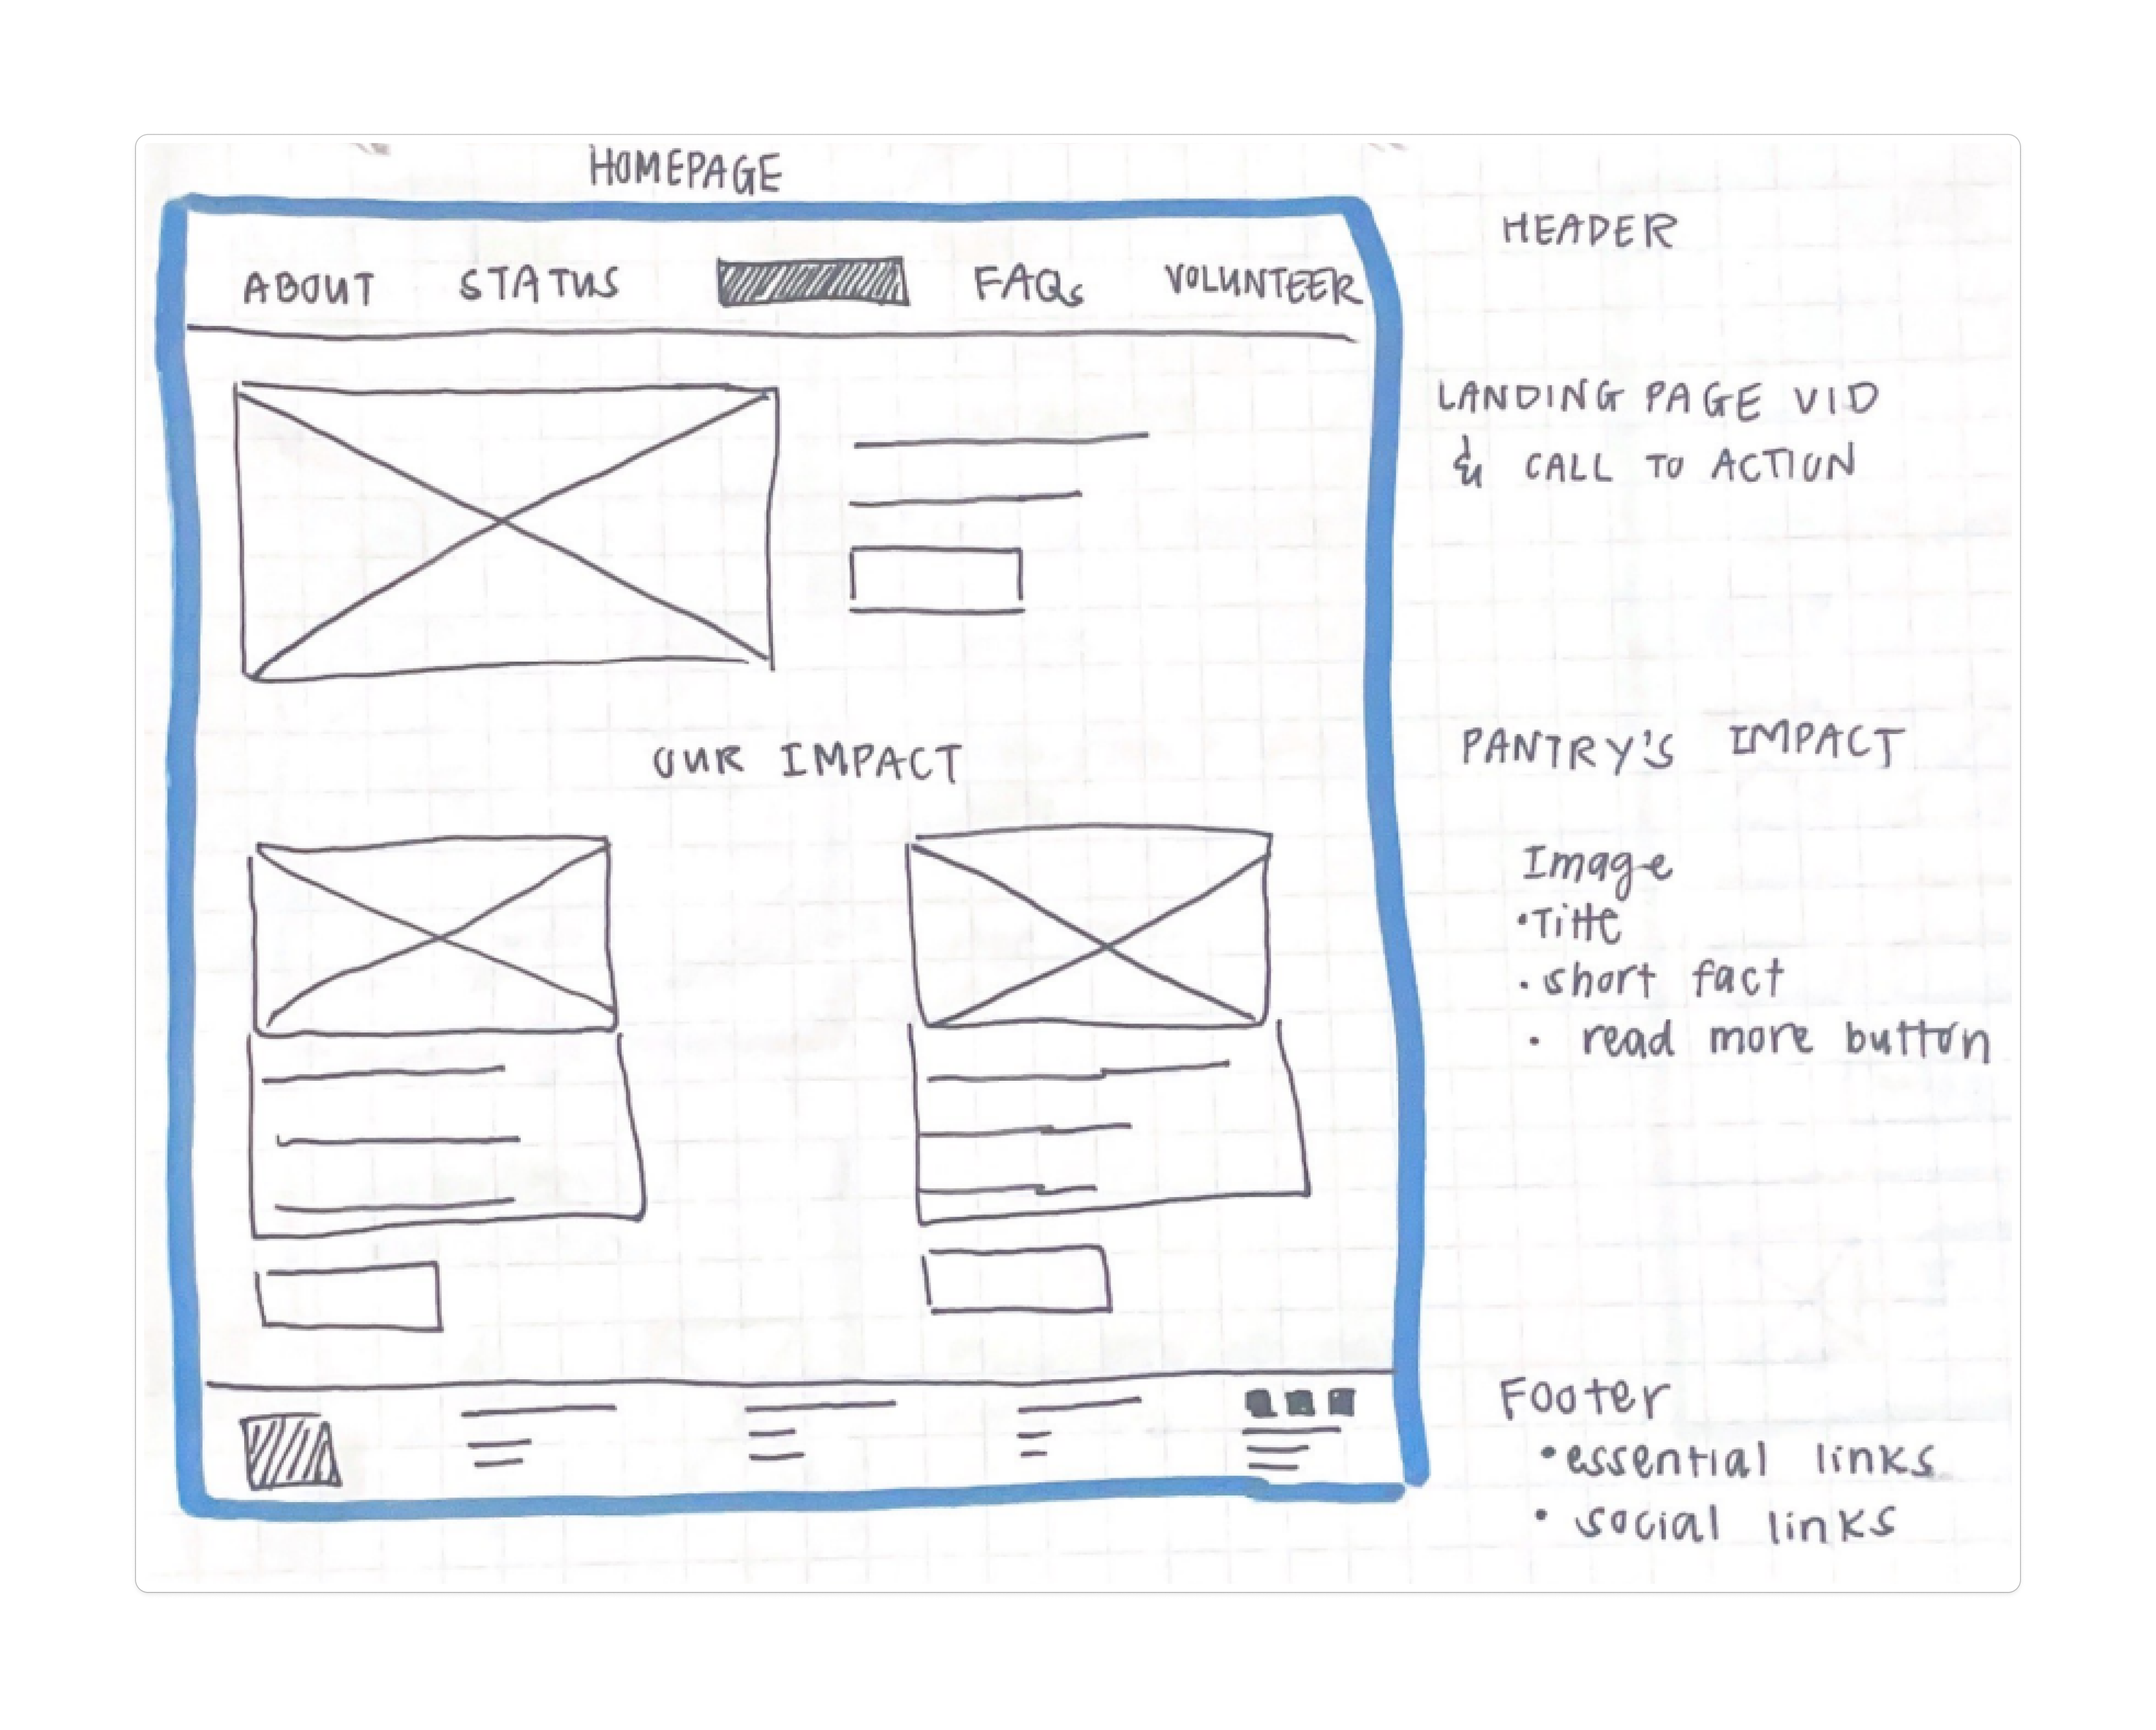 HOMEPAGE
ABOUT STATUS FAQs VOLUNTEER
OUR IMPACT
HEADER
LANDING PAGE VID
& CALL TO ACTION
PANTRY'S IMPACT
Image
• Title
• short fact
• read more button
Footer
• essential links
• social links